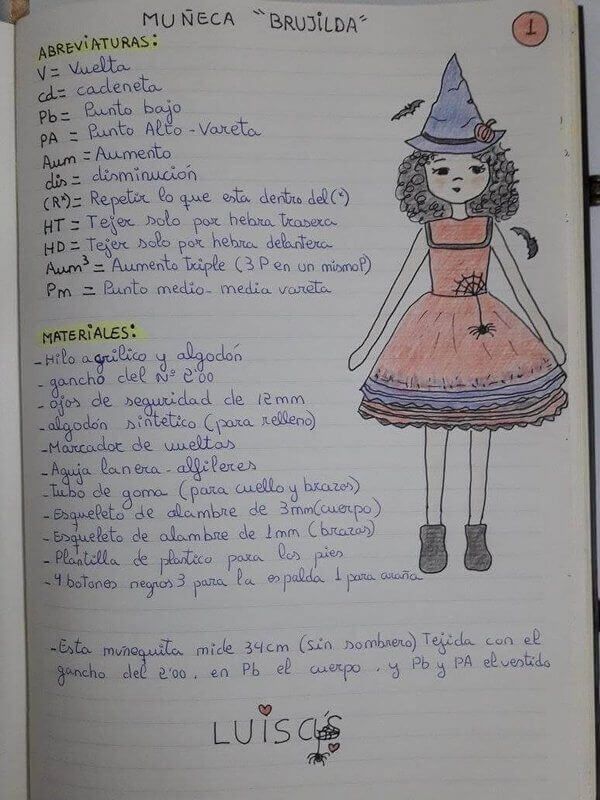 MUÑECA "BRUJILDA"
1
ABREVIATURAS:
V = Vuelta
cd= cadeneta
Pb = Punto bajo
PA = Punto Alto - Vareta
Aum = Aumento
dis = disminución
(R*) = Repetir lo que esta dentro del (*)
HT = Tejer solo por hebra trasera
HD = Tejer solo por hebra delantera
Aum³ = Aumento triple (3 P en un mismo P)
Pm = Punto medio - media vareta
MATERIALES:
- Hilo agrilico y algodón
- gancho del Nº 2'00
- ojos de seguridad de 12mm
- algodón sintetico (para relleno)
- Marcador de vueltas
- Aguja lanera - alfileres
- Tubo de goma (para cuello y brazos)
- Esqueleto de alambre de 3mm (cuerpo)
- Esqueleto de alambre de 1mm (brazos)
- Plantilla de plastico para los pies
- 4 botones negros 3 para la espalda 1 para araña
- Esta muñequita mide 34cm (sin sombrero) Tejida con el
gancho del 2'00, en Pb el cuerpo, y Pb y PA el vestido
LUISA'S